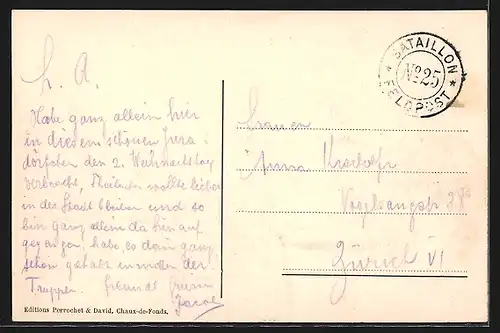 L. A.
Habe ganz allein hier
in diesem schönen Jura-
dörfchen den 2. Weihnachtstag
verbracht, wollte lieber
in der Stadt bleiben und so
bin ganz allein da hinauf
gegangen, habe es dann ganz
schön gehabt inmitten der
Truppen. freundl.
Jacob
Editions Perrochet & David, Chaux-de-Fonds.
* BATAILLON *
No 25
FELDPOST
Frauen
Anna
Vogelsangstr. 38
Zürich VI